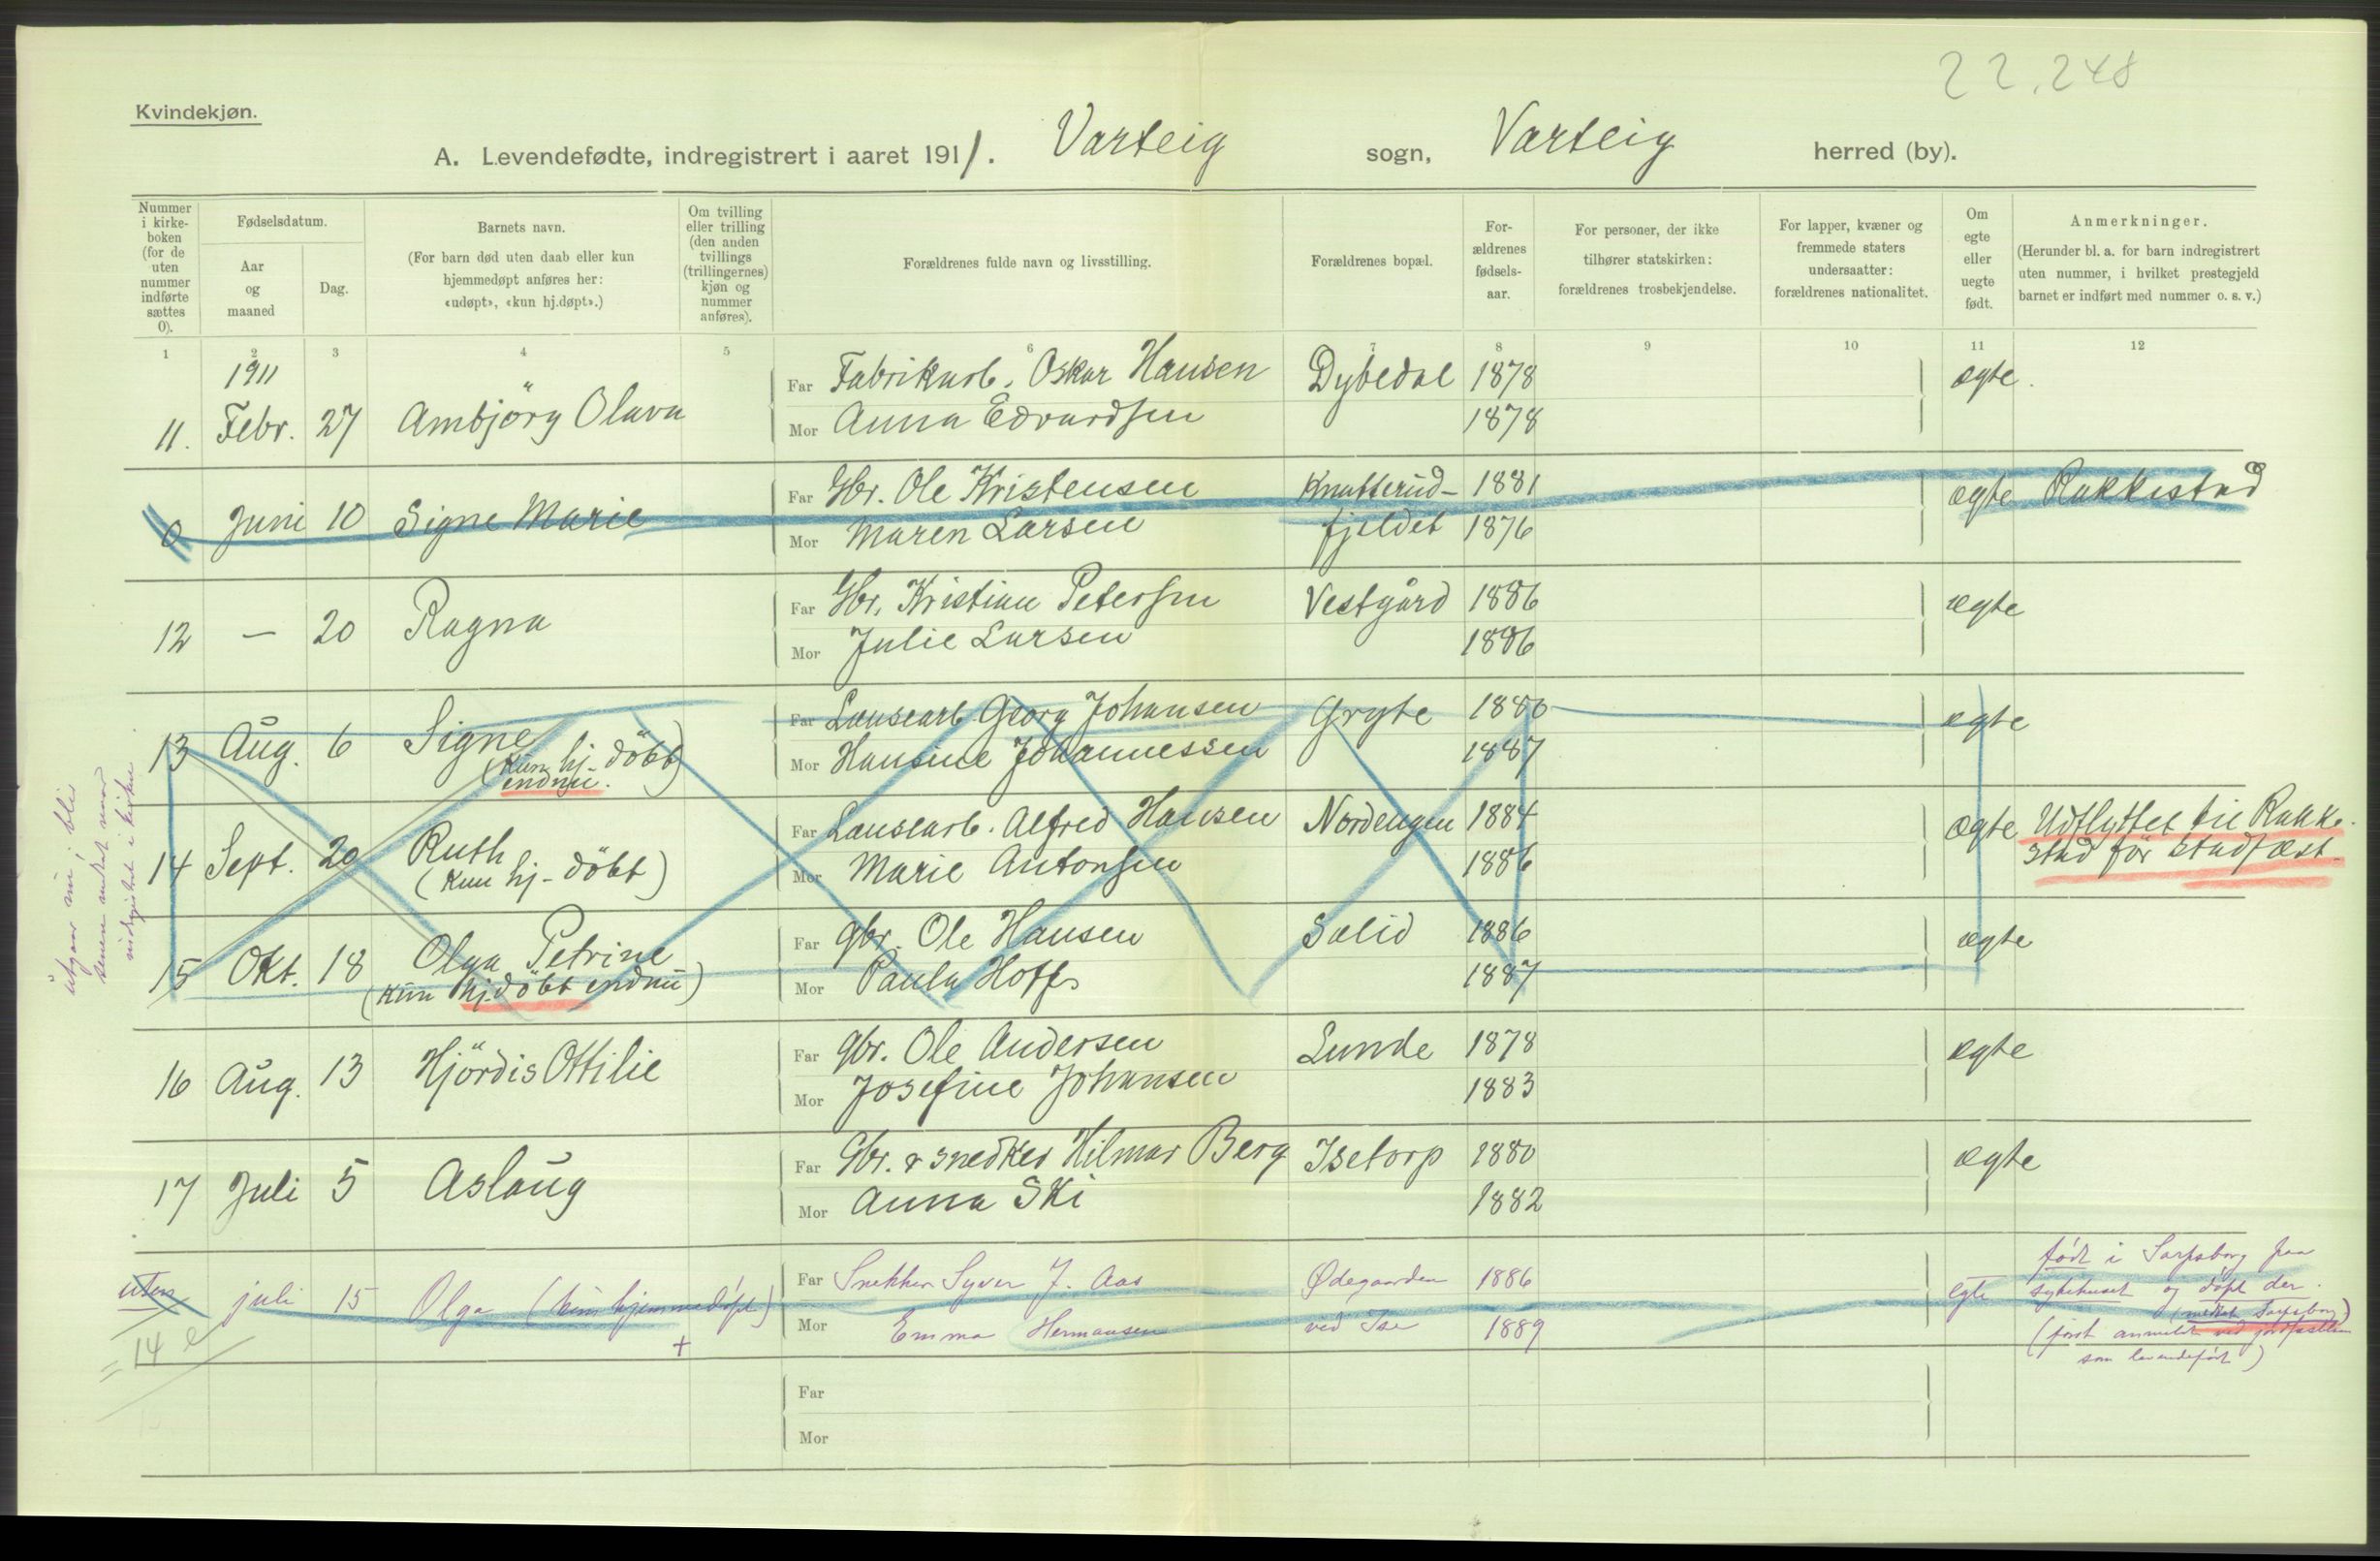 22.248
Kvindekjøn.
A. Levendefødte, indregistrert i aaret 1911. Varteig sogn, Varteig herred (by).
Nummer i kirke-boken (for de uten nummer indførte sættes 0).
Fødselsdatum.
Aar og maaned
Dag.
Barnets navn.
(For barn død uten daab eller kun hjemmedøpt anføres her: «udøpt», «kun hj.døpt».)
Om tvilling eller trilling (den anden tvillings (trillingernes) kjøn og nummer anføres).
Forældrenes fulde navn og livsstilling.
Forældrenes bopæl.
For-ældrenes fødsels-aar.
For personer, der ikke tilhører statskirken: forældrenes trosbekjendelse.
For lapper, kvæner og fremmede staters undersaatter: forældrenes nationalitet.
Om egte eller uegte født.
Anmerkninger.
(Herunder bl. a. for barn indregistrert uten nummer, i hvilket prestegjeld barnet er indført med nummer o. s. v.)
1 2 3 4 5 6 7 8 9 10 11 12
1911
Far Fabrikarb. Oskar Hansen Dybedal 1878 ægte.
11. Febr. 27 Ambjörg Olava
Mor Anna Edvardsen 1878
Far Gbr. Ole Kristensen Knatterud- 1881 ægte Rakkestad
0 Juni 10 Signe Marie
Mor Maren Larsen fjeldet 1876
Far Gbr. Kristian Petersen Vestgård 1886 ægte
12 — 20 Ragna
Mor Julie Larsen 1886
Far Lænsearb. Georg Johansen Gryte 1880 ægte
13 Aug. 6 Signe
(Kun hj. döbt)
endnu.
Mor Hansine Johannessen 1887
Far Lænsearb. Alfred Hansen Nordengen 1884 ægte Udflyttet til Rakke-
stad för stadfæst.
14 Sept. 20 Ruth
(Kun hj-döbt)
Mor Marie Antonsen 1886
Far gbr. Ole Hansen Solid 1886 ægte
15 Okt. 18 Olga Petrine
(Kun hj.döbt endnu)
Mor Paula Hoff 1887
utgaar nu, blir
senere
i kirken
Far gbr. Ole Andersen Lunde 1878 ægte
16 Aug. 13 Hjördis Ottilie
Mor Josefine Johansen 1883
Far Gbr. & snedker Hilmar Berg Isetorp 1880 ægte
17 Juli 5 Aslaug
Mor Anna Ski 1882
Far Snekker Syver J. Aas Ødegaarden 1886 egte
uten juli 15 Olga (kun hjemmedøpt)
+
Mor Emma Hermansen ved Ise 1889
født i Sarpsborg paa
sykehuset og døpt der.
(meldt Sarpsborg)
(først anmeldt ved jordfæstelsen
som levendefødt)
= 14
Far
Mor